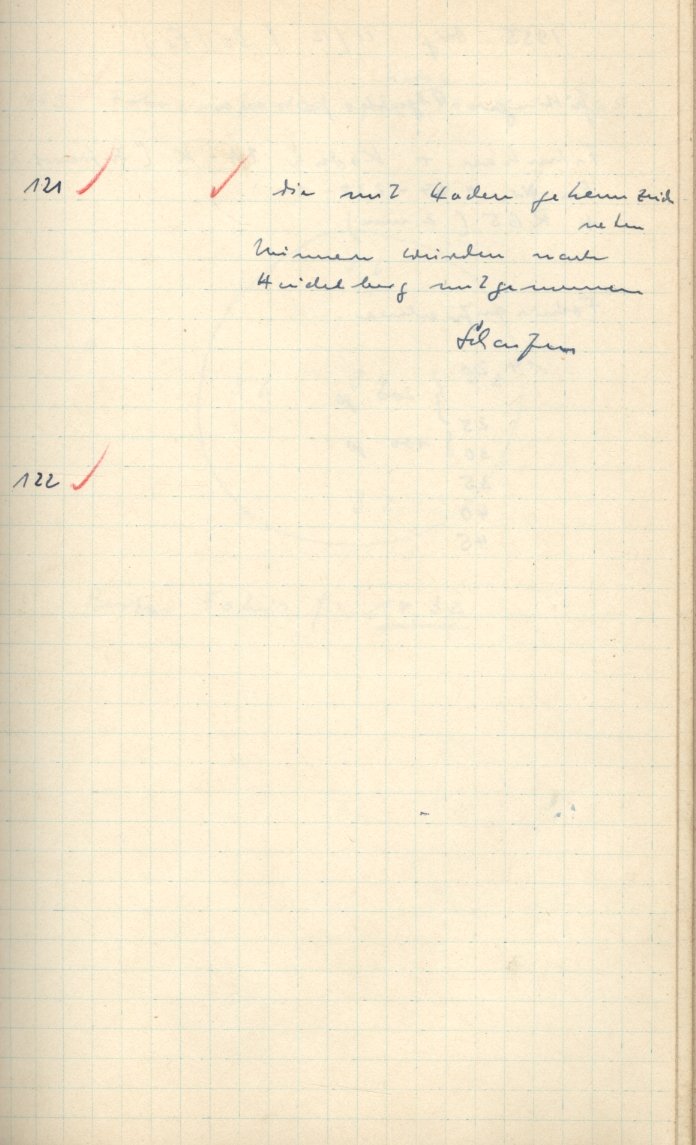 121 die mit Haken gekennzeich
neten
Nummern wurden nach
Heidelberg mitgenommen
122